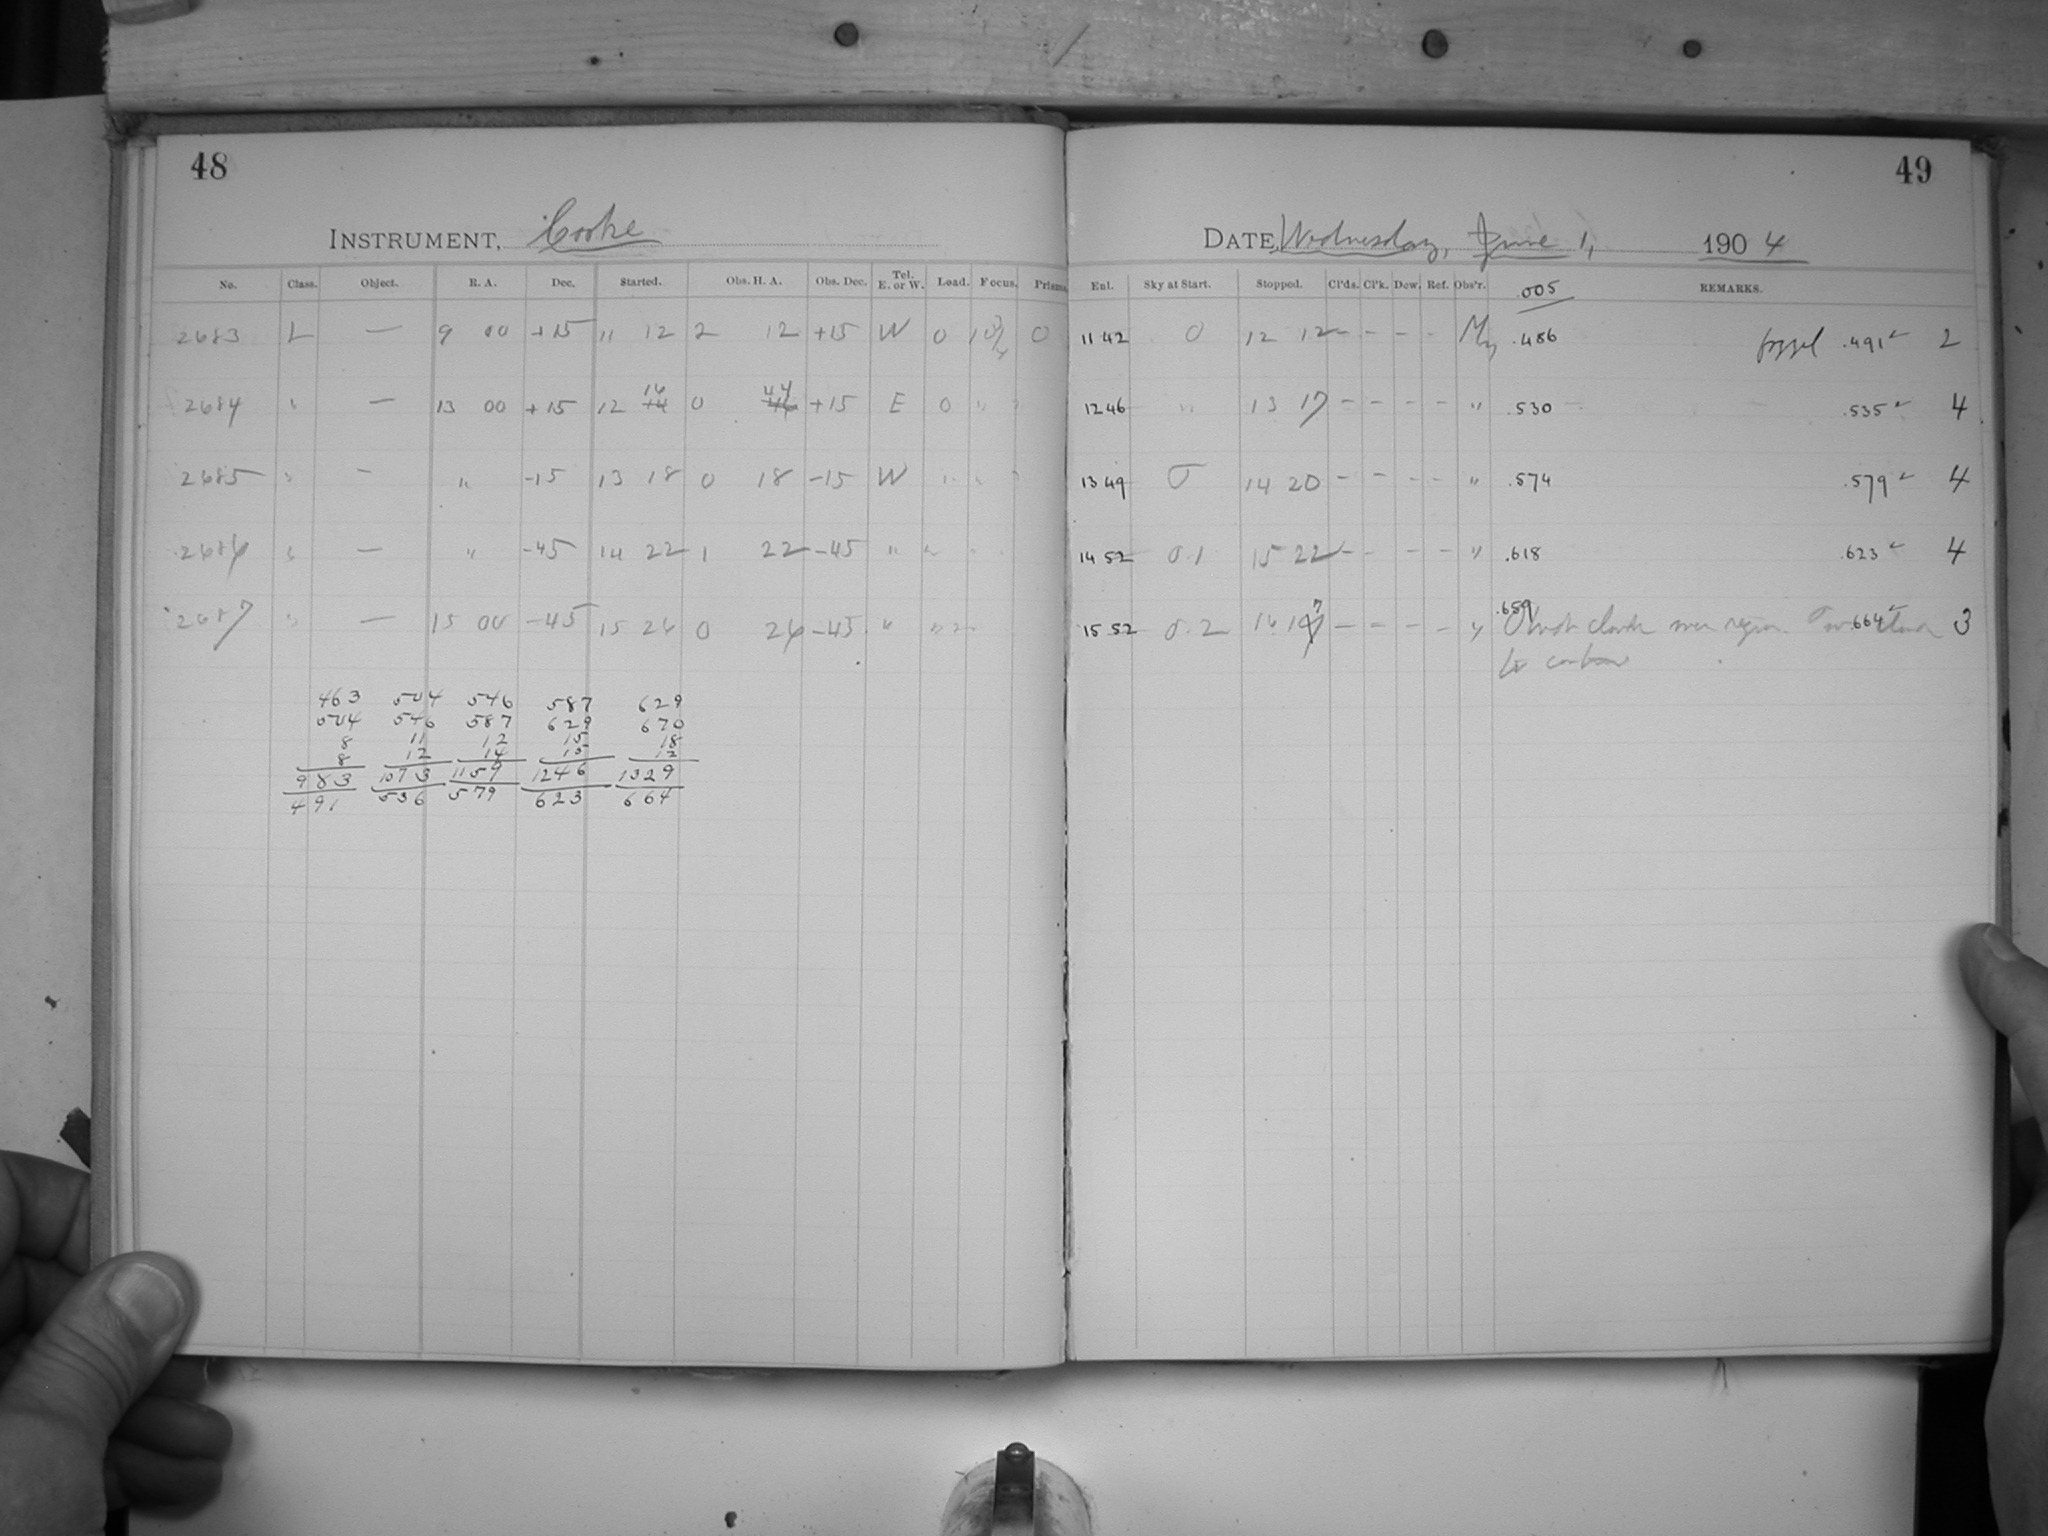 48
INSTRUMENT, Cooke
No. Class. Object. R. A. Dec. Started. Obs. H. A. Obs. Dec. Tel. E. or W. Load. Focus. Prisms.
2683 L — 9 00 +15 11 12 2 12 +15 W 0 10 3/4 0
2684 " — 13 00 +15 12 16 0 44 +15 E 0 " "
2685 " — " -15 13 18 0 18 -15 W " " "
2686 " — " -45 14 22 1 22 -45 " " "
2687 " — 15 00 -45 15 26 0 26 -45 " " "
463 504 546 587 629
504 546 587 629 670
8 11 12 15 18
8 12 14 15 12
983 1073 1159 1246 1329
491 536 579 623 664
49
DATE, Wednesday, June 1, 1904
Enl. Sky at Start. Stopped. Cl'ds. Cl'k. Dew. Ref. Obs'r. .005 REMARKS.
11 42 0 12 12 - - - - .486 fogged .491 2
12 46 " 13 17 - - - - " .530 .535 4
13 49 0 14 20 - - - - " .574 .579 4
14 52 0.1 15 22 - - - - " .618 .623 4
15 52 0.2 16 17 - - - - " .659 clouds over region .664 3
to